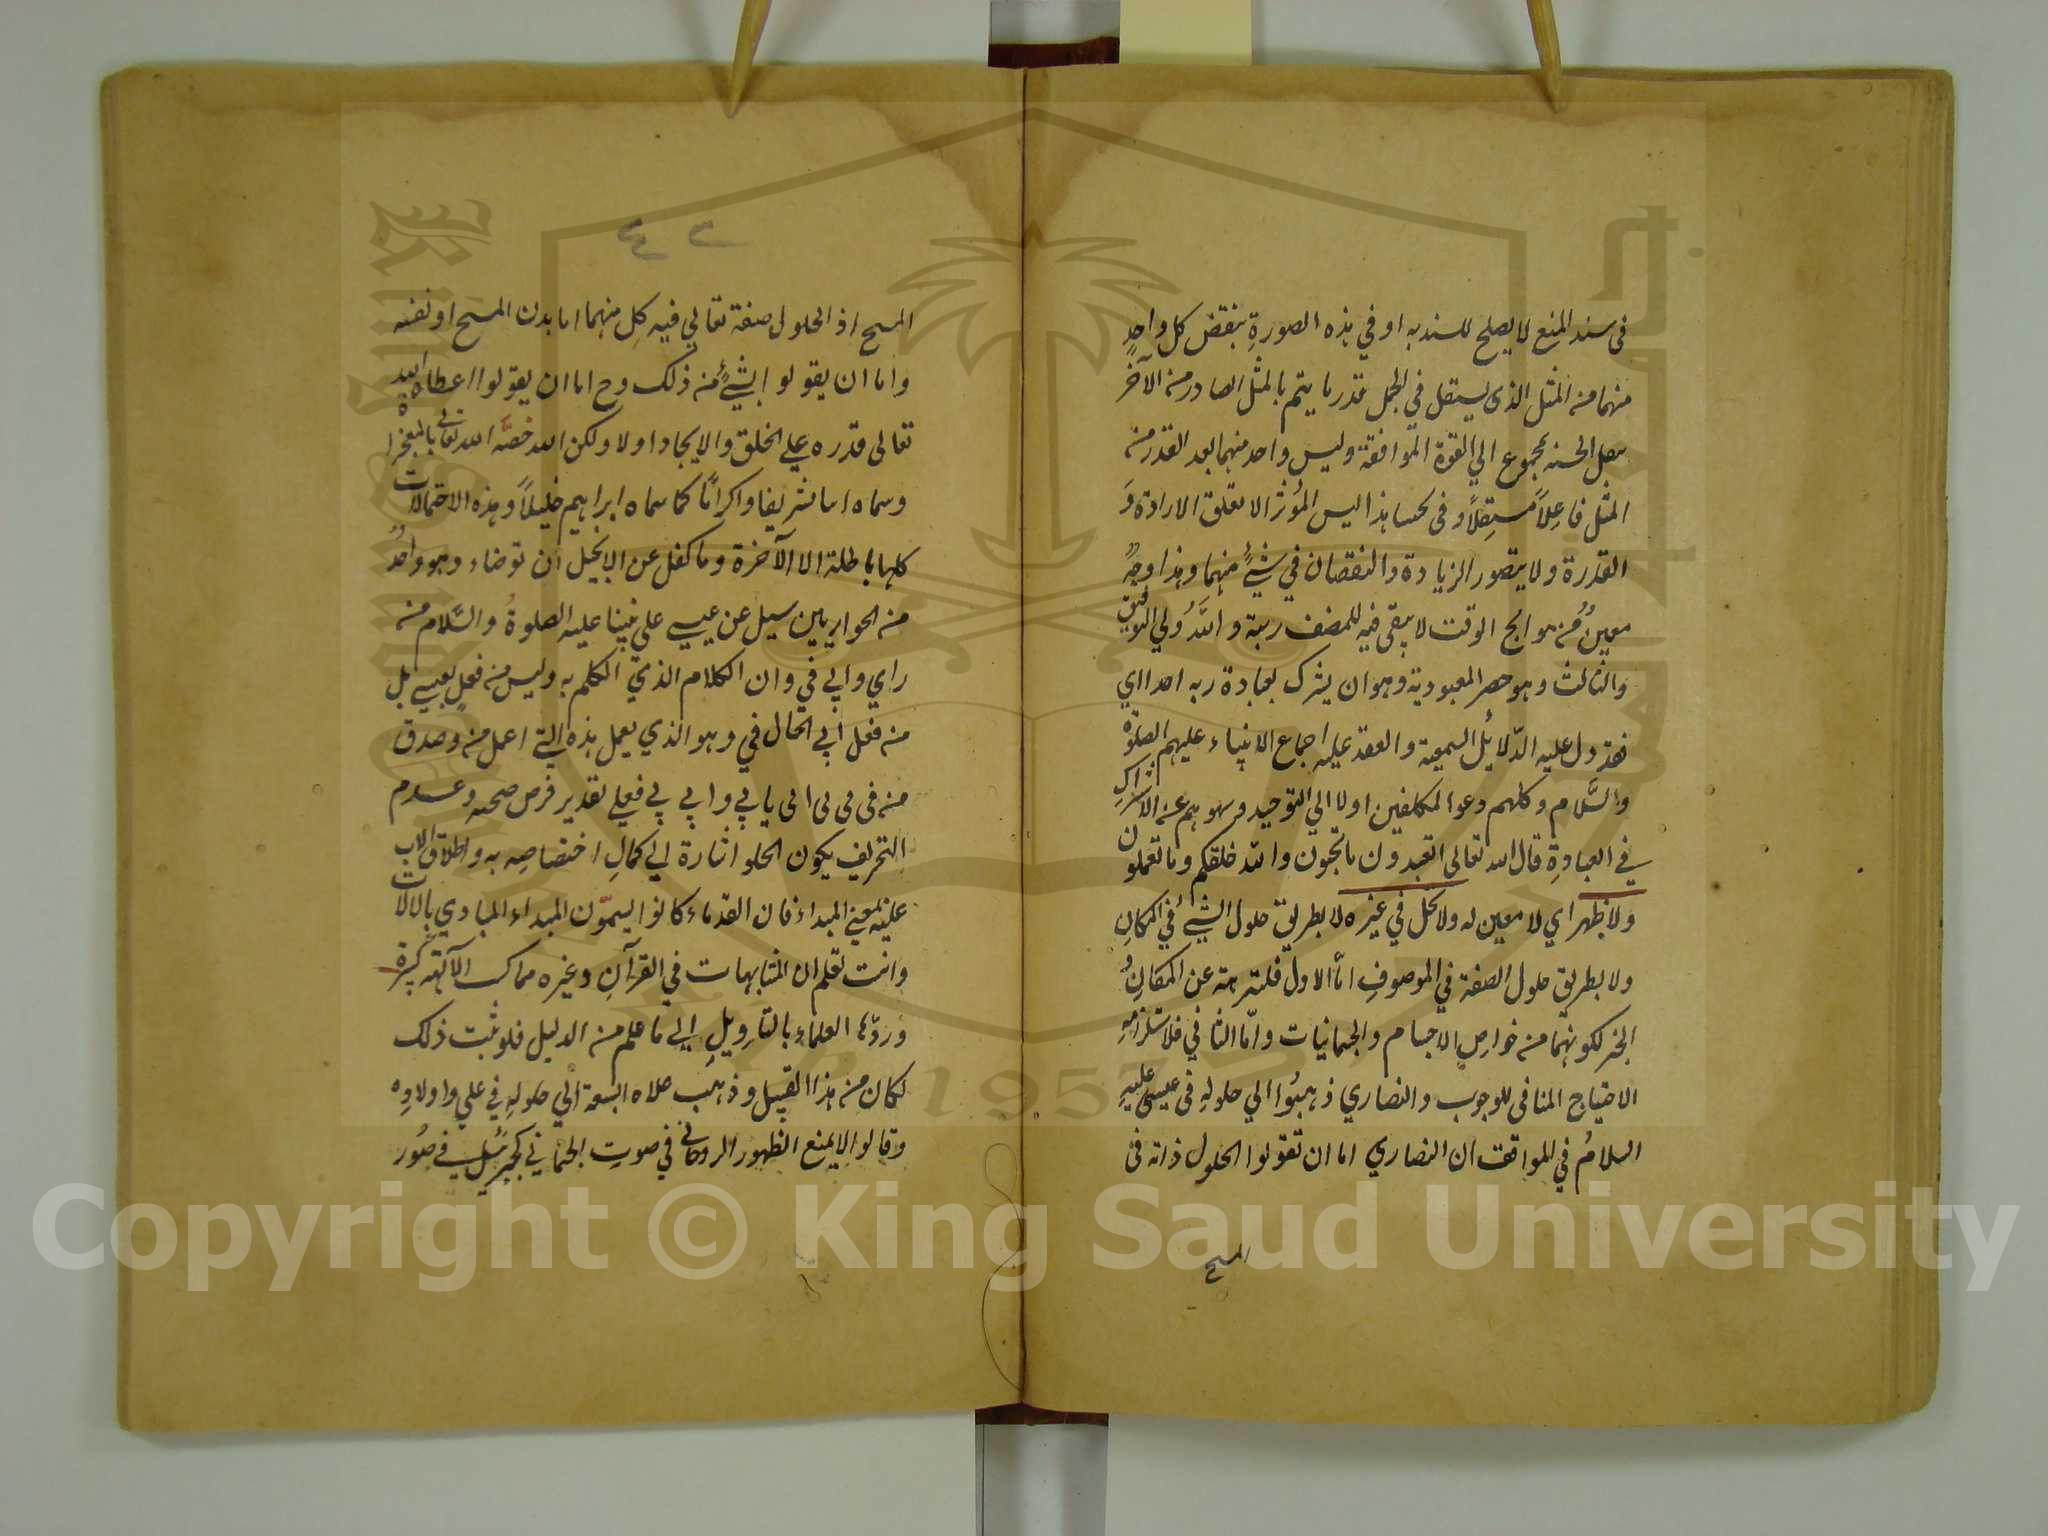 فى سند المنع لا يصلح للسند به او في هذه الصورة بنقض كل واحدٍ
منهما منه المثل الذى يستقل في الحمل قدر ما يتم بالمثل الصادر منه الآخر
بمجموع الي القوة الموافقة وليس واحد منهما بعد القدر منه
المثل فاعِلاً مستقلاً وفى هذا ليس المؤثر الا تعلق الارادة وَ
القدرة ولا يتصور الزيادة والنقصان في شيءٍ منهما وهذا وجهٌ
معينٌ منه الوقت لا يبقى فيه للمنصف ريبة واللَّهُ ولي التوفيق
والثالث وهو حصر المعبودية وهو ان يشرك بعبادة ربه احدا اي
فقد دل عليه الدّلائل السمعية والعقد عليه اجماع الانبياء عليهم الصلوة
والسَّلام وكلهم دعوا المكلفين اولا الي التوحيد ونهوهم عنه الاشراكِ
في العبادةِ قال الله تعالى اتعبدون ما تنحتون والله خلقكم وما تعملون
ولا ظهر اي لا معين له ولا يحل في غيره لا بطريق حلول الشيءِ في المكانِ
ولا بطريق حلول الصفة في الموصوفِ امّا الاول فلتنزهه عن المكانِ وُ
الحيز لكونهما منه خواصِ الاجسام والجسمانيات وامّا الثاني فلاستلزامهِ
الاحتياج المنافى للوجوب والنصاري ذهبُوا الي حلولهِ فى عيسى عليهِ
السلامُ في المواقف ان النصاري اما ان تقولوا الحلول ذاته فى
المسيح
٤٣
المسيح اذ الحلول صفة تعالي فيه كلِ منهما اما بدن المسيح او نفسه
واما ان يقولوا بشيءٍ منه ذلك وح اما ان يقولوا اعطاه الله
تعالى قدره علي الخلق والايجاد او لا ولكن الله خصَّه الله تعالى بالمعجزاة
وسماه ابنا تشريفا واكرامًا كما سماه ابراهيم خليلاً وهذه الاحتمالات
كلها باطلة الا الآخرة وما كفل عن الانجيل ان توضاء وهو واحدٌ
منه الحواريين سيل عن عيسي علي نبينا عليه الصلوةُ والسَّلام منه
راي وابي في وان الكلام الذي الكلم به وليس منه فعلِ بعيسي بل
منه فعل ابي الحال في وهو الذي يعمل هذه التي اعمل منه وصدق
تقدير فرض صحته وعدم
التحريف يكون الحلو اشارة الي كمالِ اختصاصِه به واطلاق الاب
عليه بمعني المبداء فان القدماء كانوا يسمّون المبداء المبادي بالالات
وانت تعلم ان المتشابهات في القرآن وغيره الآلهة كثيرة
وردّها العلماء بالتاويلِ الي ما علم منه الدليل فلو ثبت ذلك
لكان منه هذا القبيل وذهب السعة الي حلولهِ في علي واولاده
وقالوا لا يمنع الظهور الروحاني في صوت الجسماني كجبرئيل في صُور
Copyright © King Saud University
1957